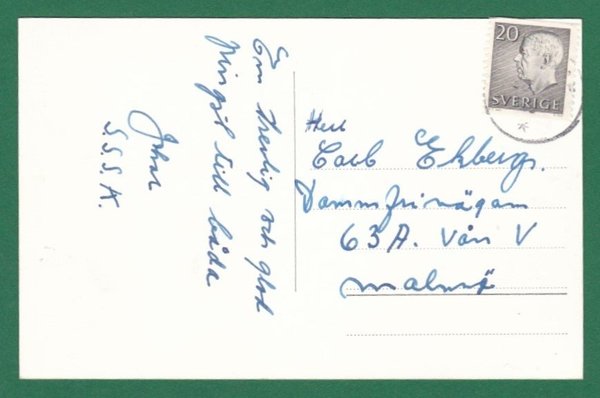 En trevlig och glad
pingst till båda
Johan
S.S.S.K.
20
SVERIGE
Herr
Carl Ekberg.
Dammfrivägen
63A. Vån V
Malmö